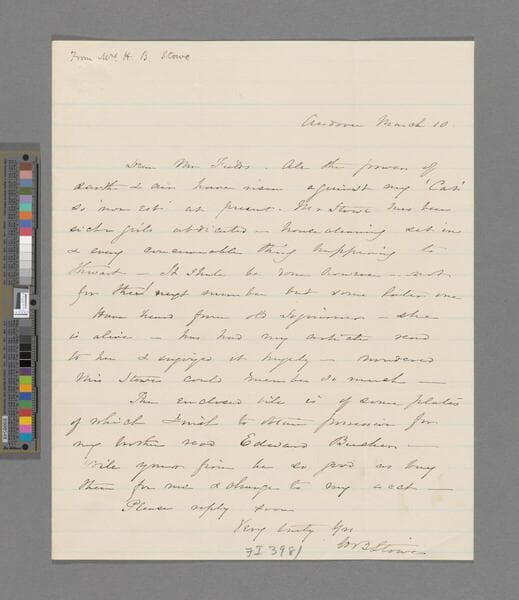 From Mrs H. B. Stowe
Andover March 10
Dear Mr Fields - All the powers of
earth & air have risen against my 'Cat'
so 'non est' at present. Mr Stowe has been
sick girls abdicated - house cleaning set in
& every conceivable thing happening to
thwart - It shall be done however - not
for the next number but some later one
Have heard from old Sojourner - she
is alive - has had my article read
to her & enjoyed it hugely - wondered
Miss Stowe could 'member so much -
The enclosed bile is of some plates
of which I wish to obtain possession for
my brother Edward Beecher -
Wile your firm be so good as buy
them for me & charge to my acct -
Please reply soon
Very truly Yrs
HBStowe
FI 3981